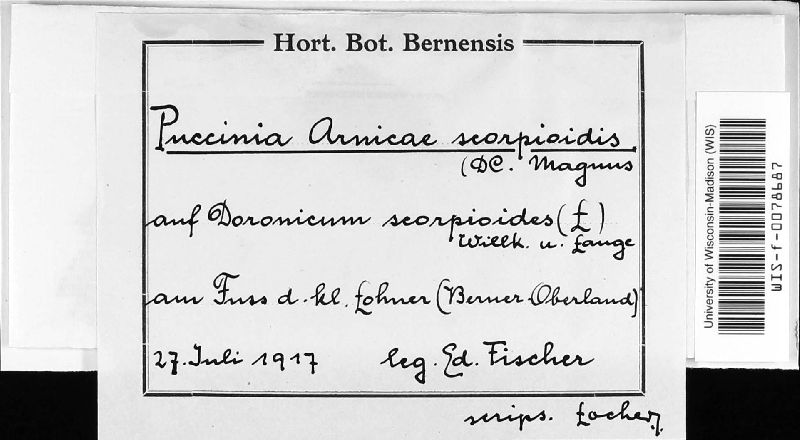 Hort. Bot. Bernensis
Puccinia Arnicae scorpioidis
(DC. Magnus
auf Doronicum scorpioides (L)
Willk. u. Lange
am Fuss d. kl. Lohner (Berner Oberland)
27. Juli 1917 leg. Ed. Fischer
scrips.
University of Wisconsin-Madison (WIS)
WIS-f-0078687